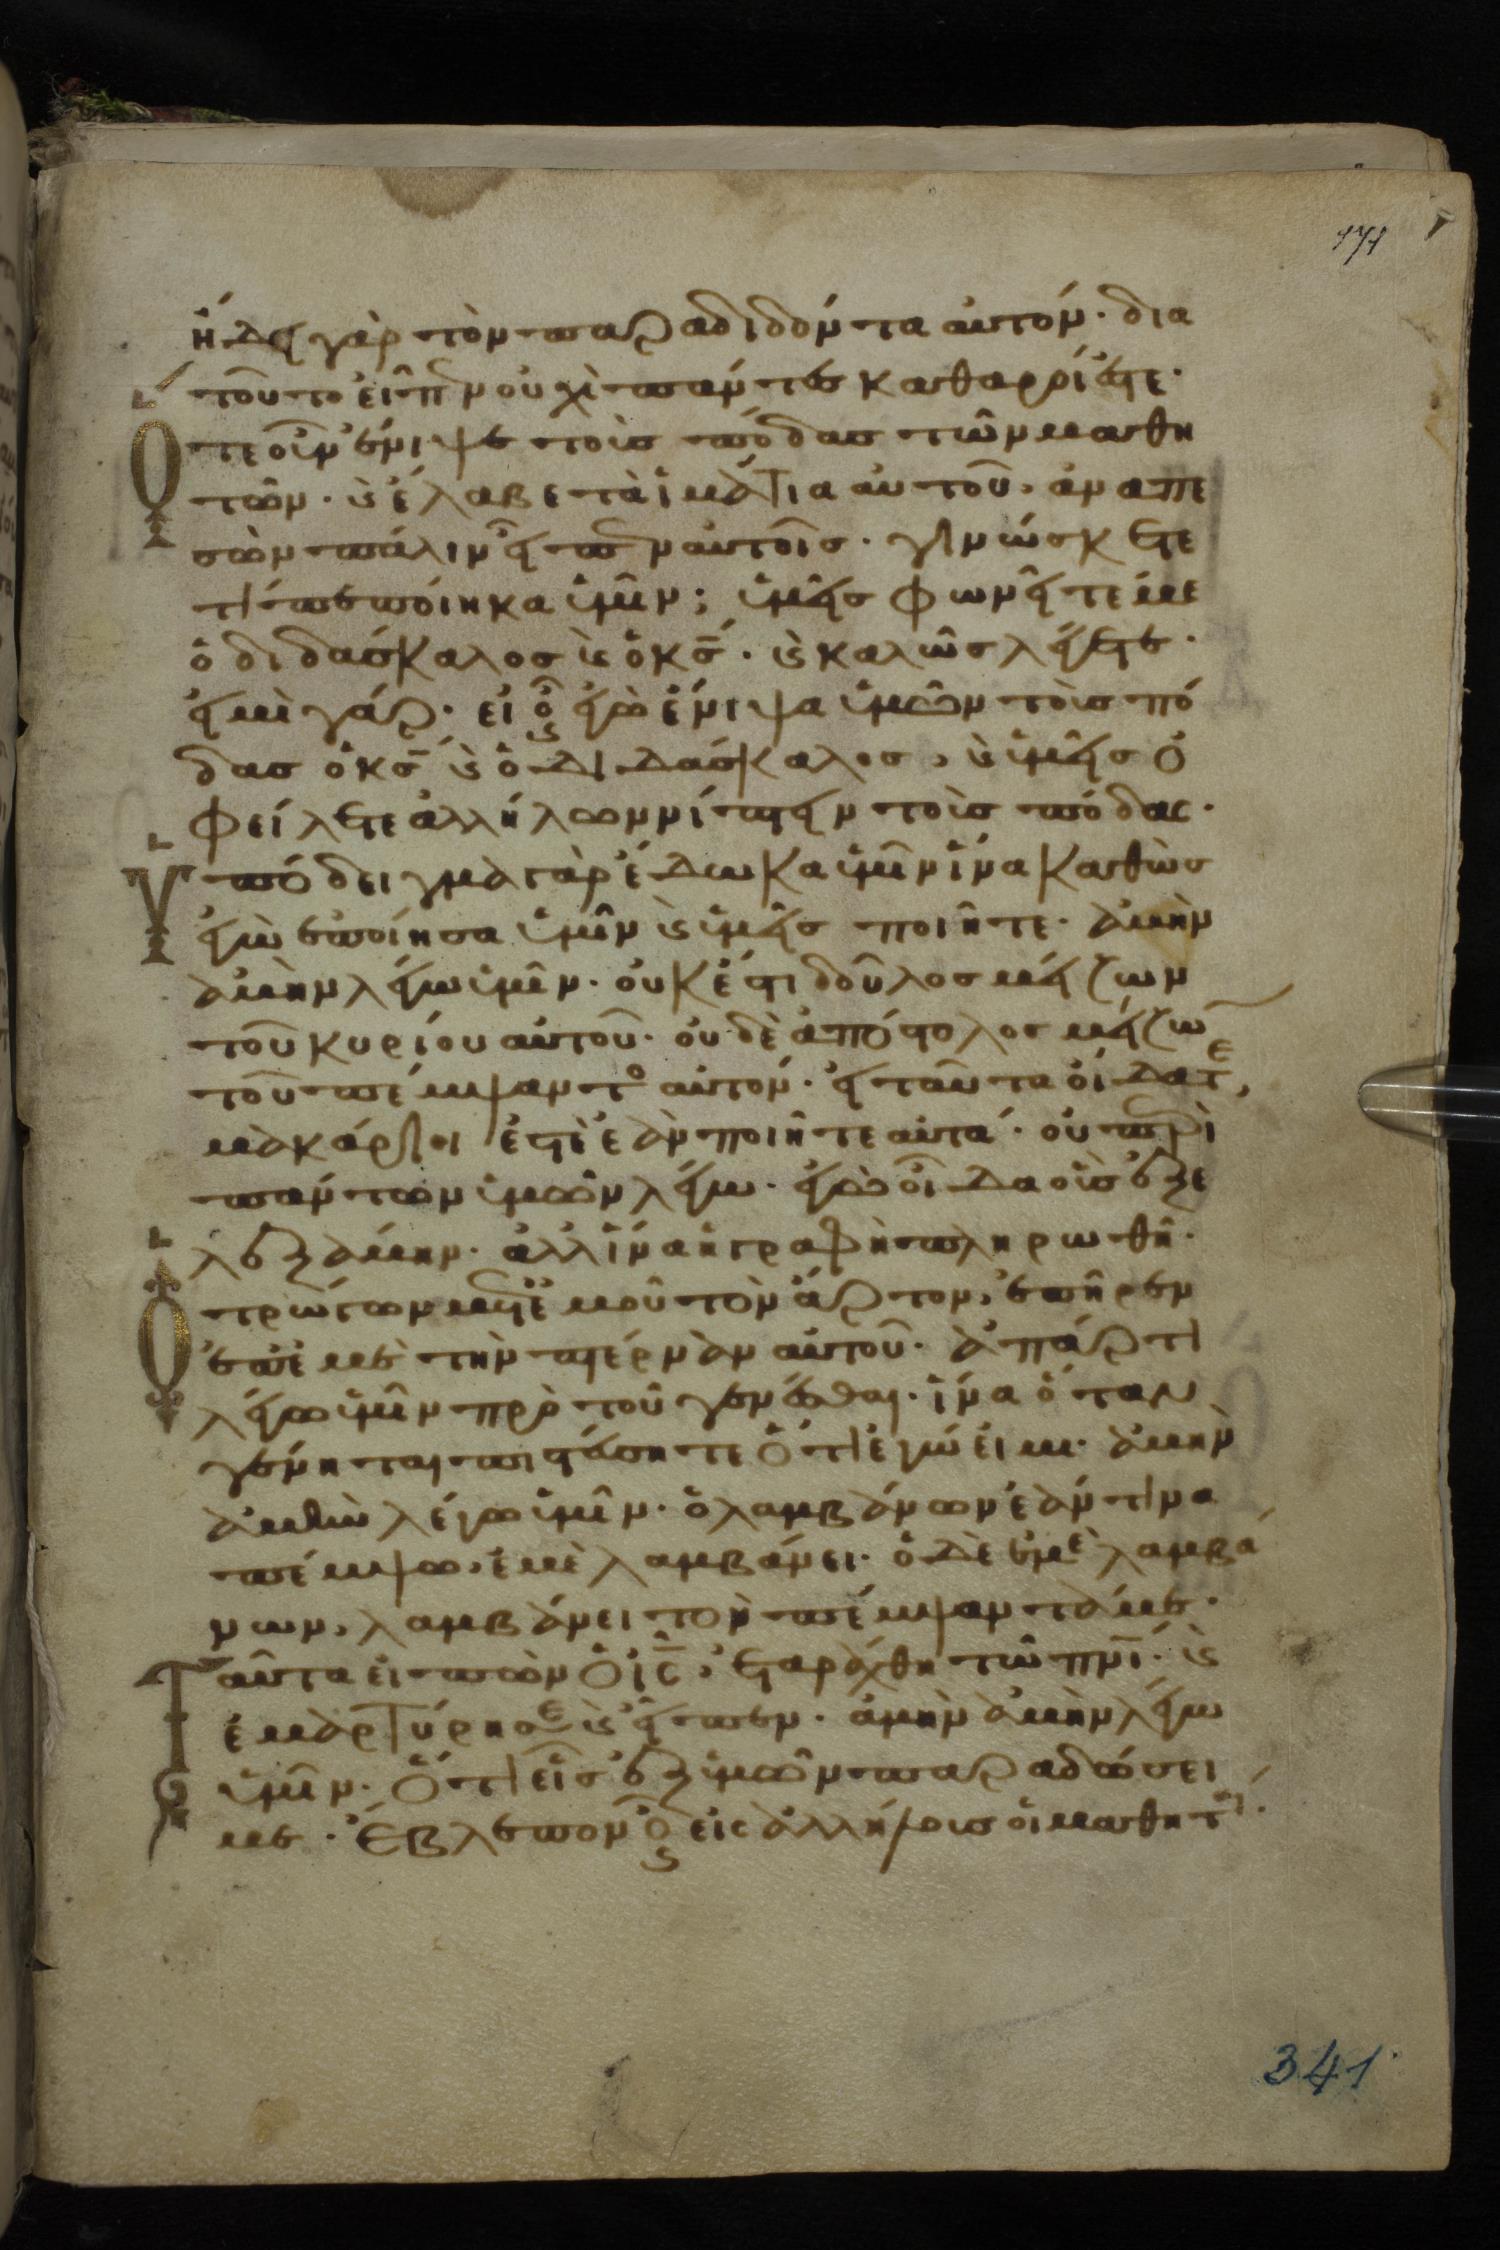 171
ἤδει γὰρ τὸν παραδιδόντα αὐτόν· δια
τοῦτο εἶπεν οὐχὶ πάντες καθαροί ἐστε·
Ὅτε οὖν ἔνιψε τοὺς πόδας τῶν μαθη
τῶν· ϗ ἔλαβε τὰ ἱμάτια αὐτοῦ, ἀναπε
σὼν πάλιν εἶπεν αὐτοῖς· γινώσκετε
τί πεποίηκα ὑμῖν; ὑμεῖς φωνεῖτέ με
ὁ διδάσκαλος ϗ ὁ κς̄· ϗ καλῶς λέγετε·
εἰμὶ γάρ· εἰ οὖν ἐγὼ ἔνιψα ὑμῶν τοὺς πό
δας ὁ κς̄ ϗ ὁ διδάσκαλος, ϗ ὑμεῖς ὀ
φείλετε ἀλλήλων νίπτειν τοὺς πόδας·
Ὑπόδειγμα γὰρ ἔδωκα ὑμῖν ἵνα καθὼς
ἐγὼ ἐποίησα ὑμῖν ϗ ὑμεῖς ποιῆτε· ἀμὴν
ἀμὴν λέγω ὑμῖν· οὐκ ἔστι δοῦλος μείζων
τοῦ κυρίου αὐτοῦ· οὐδὲ ἀπόστολος μείζω
τοῦ πέμψαντο αὐτόν· εἰ ταῦτα οἴδατε,
μακάριοι ἐστὲ ἐὰν ποιῆτε αὐτά· οὐ περὶ
πάντων ὑμῶν λέγω· ἐγὼ οἶδα οὓς ἐξε
λεξάμην· ἀλλ ἵνα ἡ γραφὴ πληρωθῇ·
Ὁ τρώγων μετ ἐμοῦ τὸν ἄρτον, ἐπῆρεν
ἐπ ἐμὲ τὴν πτέρναν αὐτοῦ· ἀπάρτι
λέγω ὑμῖν πρὸ τοῦ γενέσθαι· ἵνα ὅταν
γένηται πιστεύσητε ὅτι ἐγώ εἰμι· ἀμὴν
ἀμὴν λέγω ὑμῖν· ὁ λαμβάνων ἐάν τινα
πέμψω, ἐμὲ λαμβάνει· ὁ δὲ ἐμὲ λαμβά
νων, λαμβάνει τὸν πέμψαντά με·
Ταῦτα εἰπὼν ὁ ις̄, ἐταράχθη τῶ πνῑ· ϗ
ἐμαρτύρησε ϗ εἶπεν· ἀμὴν ἀμὴν λέγω
ὑμῖν· ὅτι εἷς ἐξ ὑμῶν παραδώσει
με· ἔβλεπον οὖν εἰς ἀλλήλους οἱ μαθηταί·
341